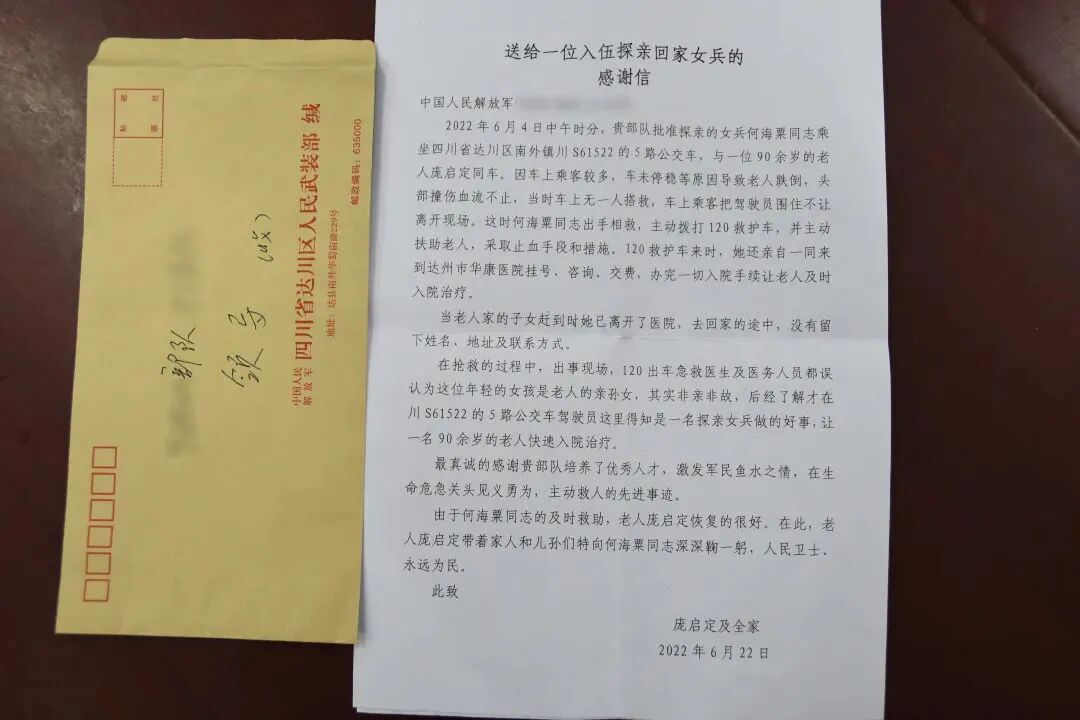 送给一位入伍探亲回家女兵的
感谢信
中国人民解放军
2022年6月4日中午时分，贵部队批准探亲的女兵何海粟同志乘
坐四川省达川区南外镇川S61522的5路公交车，与一位90余岁的老
人庞启定同车。因车上乘客较多，车未停稳等原因导致老人跌倒，头
部撞伤血流不止，当时车上无一人搭救，车上乘客把驾驶员围住不让
离开现场。这时何海粟同志出手相救，主动拨打120救护车，并主动
扶助老人，采取止血手段和措施。120救护车来时，她还亲自一同来
到达州市华康医院挂号、咨询、交费，办完一切入院手续让老人及时
入院治疗。
当老人家的子女赶到时她已离开了医院，去回家的途中，没有留
下姓名、地址及联系方式。
在抢救的过程中，出事现场，120出车急救医生及医务人员都误
认为这位年轻的女孩是老人的亲孙女，其实非亲非故，后经了解才在
川S61522的5路公交车驾驶员这里得知是一名探亲女兵做的好事，让
一名90余岁的老人快速入院治疗。
最真诚的感谢贵部队培养了优秀人才，激发军民鱼水之情，在生
命危急关头见义勇为，主动救人的先进事迹。
由于何海粟同志的及时救助，老人庞启定恢复的很好。在此，老
人庞启定带着家人和儿孙们特向何海粟同志深深鞠一躬，人民卫士、
永远为民。
此致
庞启定及全家
2022年6月22日
邮票
贴处
部队
领导
（收）
中国人民
解放军
四川省达川区人民武装部 缄
地址：达县南外华蜀南路229号
邮政编码：635000